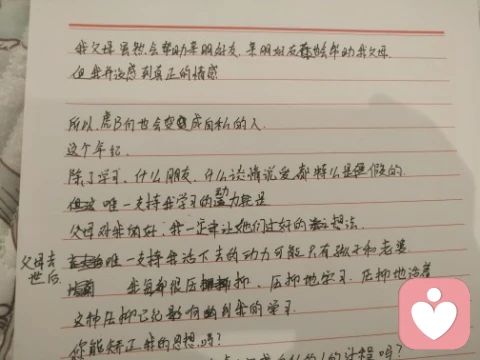 我父母虽然会帮助亲朋好友,亲朋好友也会帮助我父母
但我并没感到真正的情感
所以,虎B何也会变成自私的人.
这个年纪.
除了学习、什么朋友、什么谈情说爱都特么是假的.
唯一支持我学习的动力就是
父母对我的好:我一定要让她们过好的想法.
父母去世后
唯一支持我活下去的动力可能只有孩子和老婆
我每都很压抑,压抑地学习,压抑地活着
这种压抑记忆影响到我的学习
你能矫正我的思想吗?